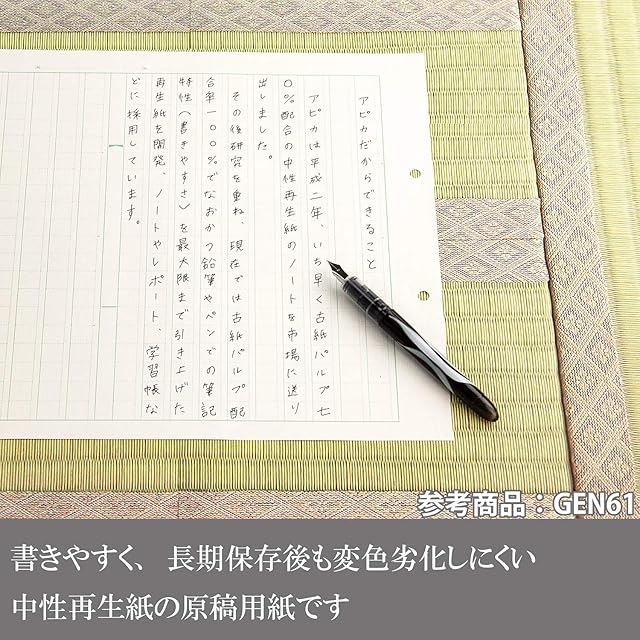 アピカだからできること
アピカは平成二年、いち早く古紙パルプ七
〇％配合の中性再生紙のノートを市場に送り
出しました。
その後研究を重ね、現在では古紙パルプ配
合率一〇〇％でなおかつ鉛筆やペンでの筆記
特性（書きやすさ）を最大限まで引き上げた
再生紙を開発、ノートやレポート、学習帳な
どに採用しています。
参考商品：GEN61
書きやすく、長期保存後も変色劣化しにくい
中性再生紙の原稿用紙です